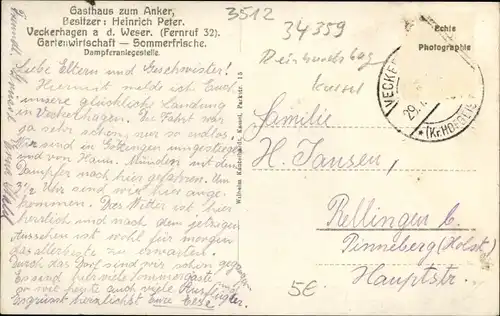 Gasthaus zum Anker,
Besitzer: Heinrich Peter.
Veckerhagen a d. Weser. (Fernruf 32).
Gartenwirtschaft — Sommerfrische.
Dampferanlegestelle.
3512
34359
Reinhardshag
Kassel
Echte
Photographie
VECKER
29.
*(Kr. HOFGEIS
Liebe Eltern und Geschwister!
Hiermit melde ich Euch
unsere glückliche Landung
in Veckerhagen. Die Fahrt war
ja sehr schön, nur so endlos.
Wir sind in Göttingen umgestiegen
und von Hann. Münden mit dem
Dampfer nach hier gefahren. Um
7 1/2 Uhr sind wir hier ange-
kommen. Das Wetter ist hier
herrlich und nach dem jetzigen
Aussehen ist wohl für morgen
das allerbeste zu erwarten.
Durch das Dorf sind wir schon gegangen
Es sind sehr viele Sommergäste
so wie heute auch viele Ausflügler.
Es grüsst herzlichst Eure
Wilhelm Kassel, Parkstr. 15
Familie
H. Jansen,
Rellingen b.
Pinneberg (Holst.)
Hauptstr.
5E